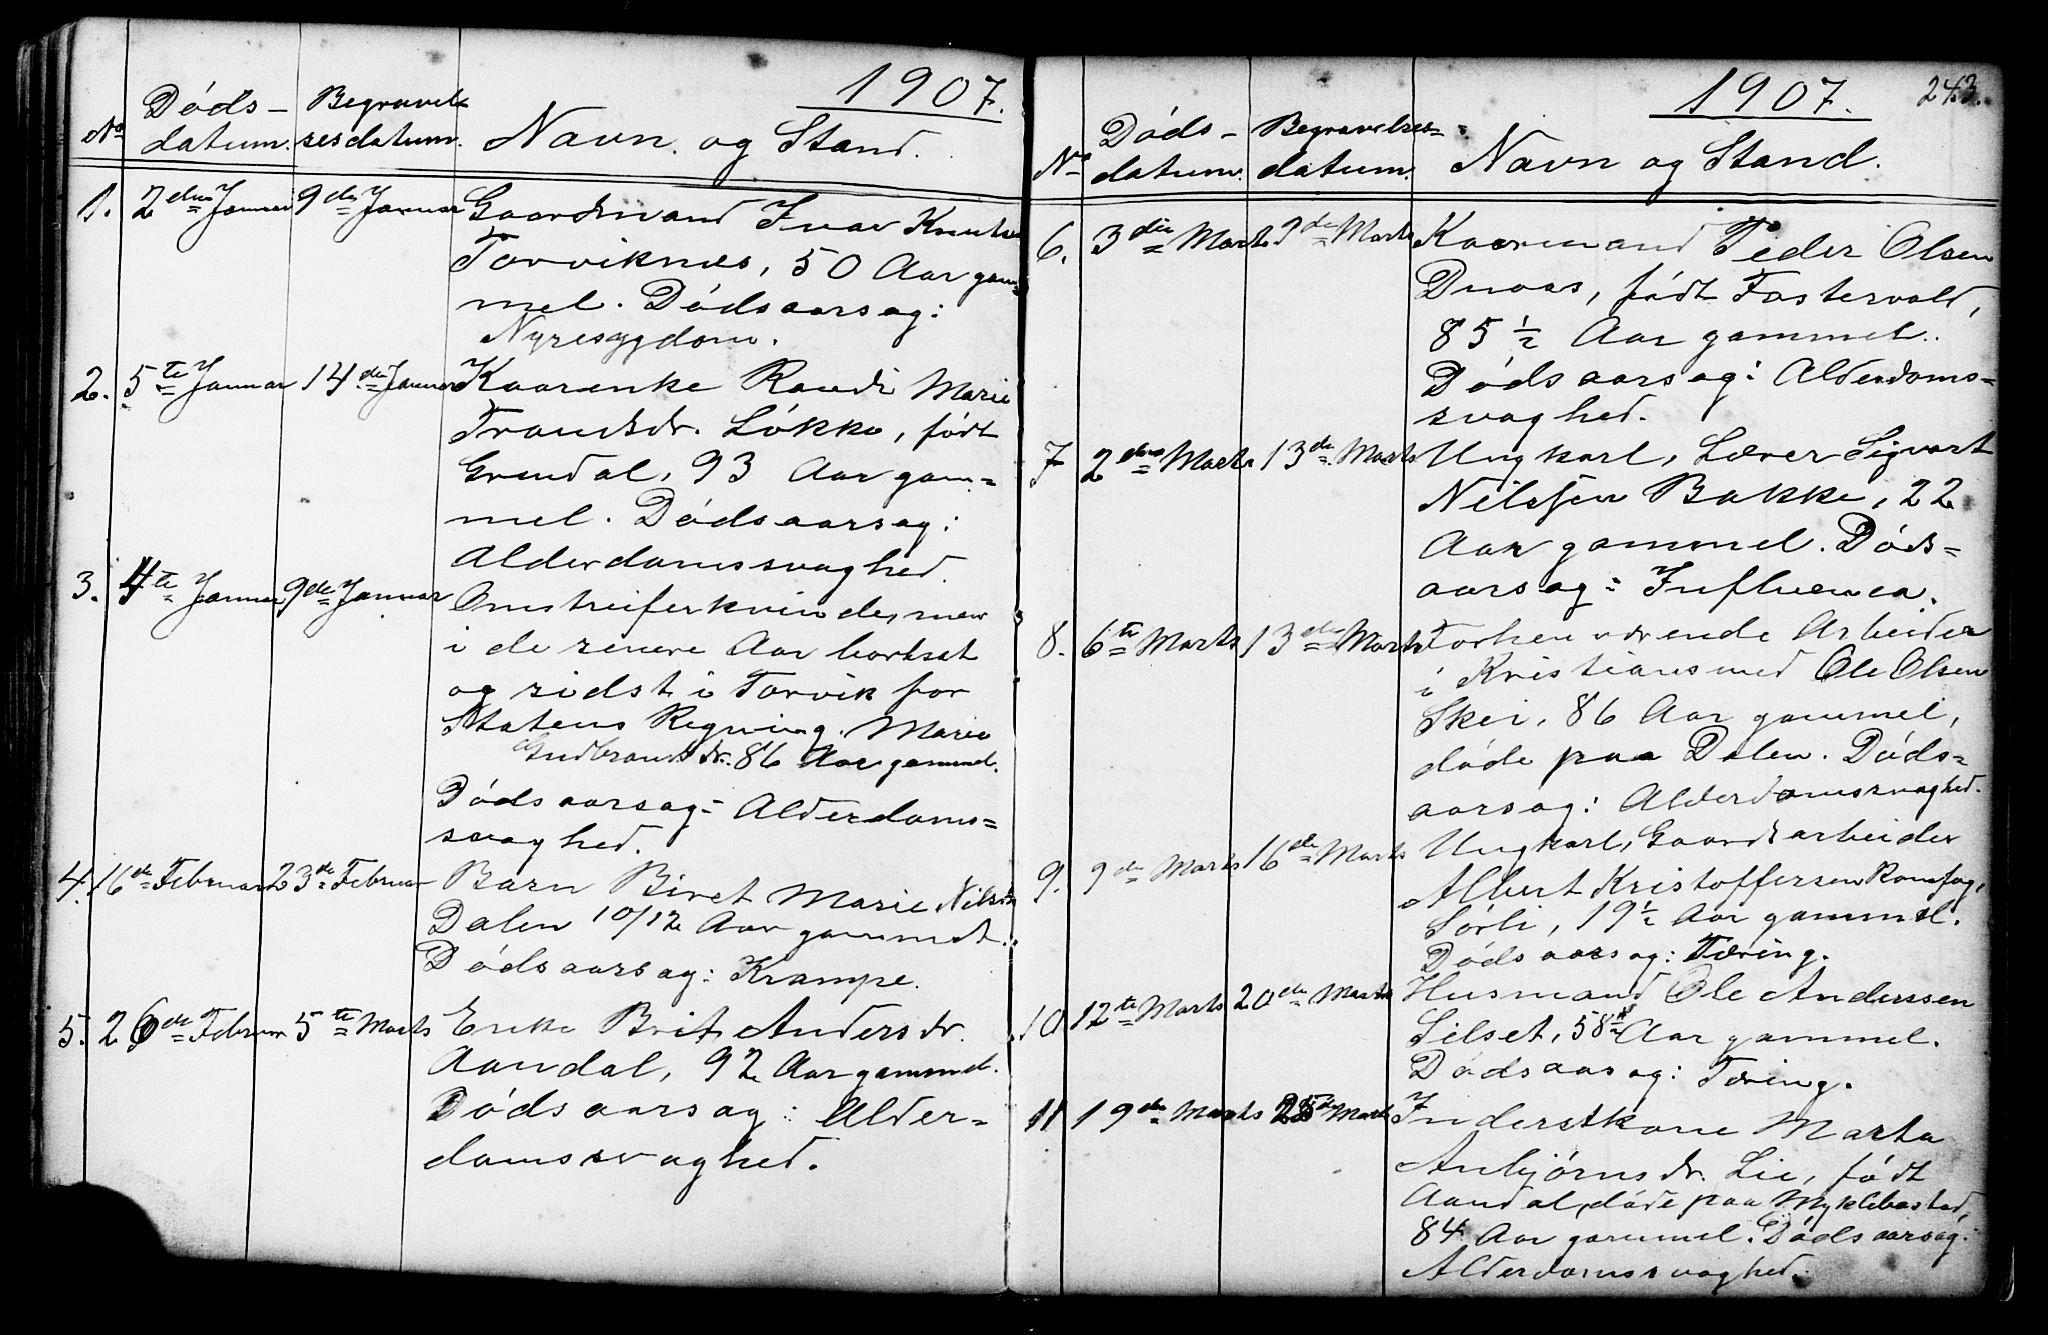 1907.
No Døds- Begravel-
datum. sesdatum. Navn og Stand.
1. 2den Januar 9de Januar Gaardmand Ivar Knuts
Torviknes, 50 Aar gam-
mel. Dødsaarsag:
Nyresygdom.
2. 5te Januar 14de Januar Kaarenke Randi Marie
Trondsdr. Løkke, født
Grendal, 93 Aar gam-
mel. Dødsaarsag:
Alderdomssvaghed.
3. 4te Januar 9de Januar Omstreiferkvinde, men
i de senere Aar bortsat
og sidst i Torvik for
Statens Regning. Marie
Gudbrandsdr. 86 Aar gammel.
Dødsaarsag: Alderdoms-
svaghed.
4. 16de Februar 23de Februar Barn Beret Marie Nilsdr
Dalen 10/12 Aar gammel.
Dødsaarsag: Krampe.
5. 26de Februar 5te Marts Enke Brit Andersdr.
Aandal, 92 Aar gammel.
Dødsaarsag: Alder-
domssvaghed.
1907. 243.
No Døds- Begravelses-
datum. datum. Navn og Stand.
6. 3die Marts 9de Marts Kaarmand Peder Olsen
Devaas, født Fostervold,
85 1/2 Aar gammel.
Dødsaarsag: Alderdoms-
svaghed.
7 2den Marts 13de Marts Ungkarl, Lærer Sigvart
Nilssen Bakke, 22
Aar gammel. Døds-
aarsag: Influenca.
8. 6te Marts 13de Marts Forhenværende Arbeider
i Kristiansund Ole Olsen
Skei, 86 Aar gammel,
døde paa Dalen. Døds-
aarsag: Alderdomssvaghed.
9. 9de Marts 16de Marts Ungkarl, Gaardsarbeider
Albert Kristoffersen
Sørli, 19 1/2 Aar gammel.
Dødsaarsag: Tæring.
10 12te Marts 20de Marts Husmand Ole Anderssen
Silset, 58 Aar gammel.
Dødsaarsag: Tæring.
11 19de Marts 25de Marts Inderstkone Marta
Anbjørnsdr. Lie, født
Aandal, døde paa Myklebostad,
84 Aar gammel. Dødsaarsag:
Alderdomssvaghed.